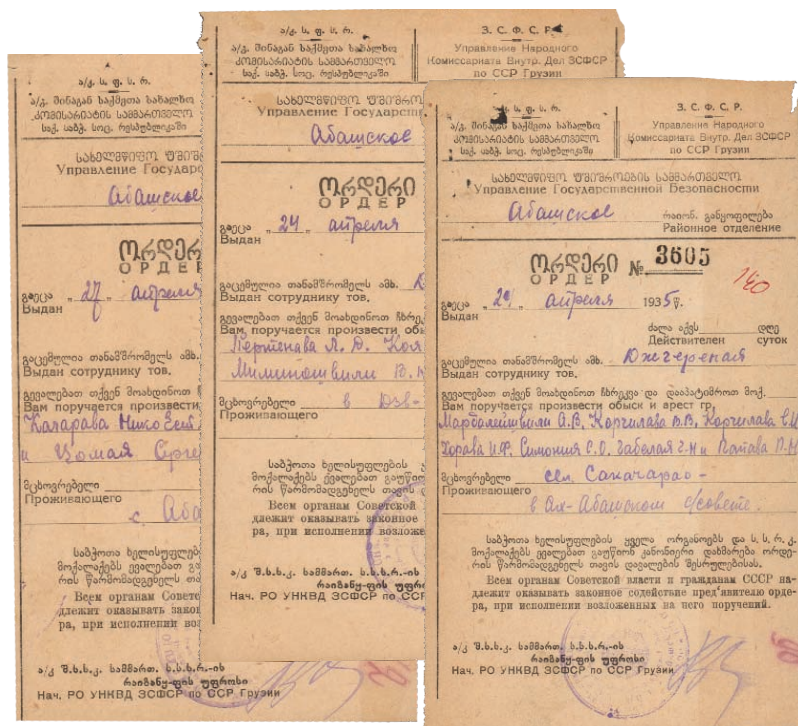 ა/კ. ს. ფ. ს. რ.
ა/კ. შინაგან საქმეთა სახალხო
კომისარიატის სამმართველო
საქ. საბჭ. სოც. რესპუბლიკაში
Управление Государ
Абашское
ორდერი
ОРДЕР
გაეცა „ 27 „ апреля
Выдан
გაცემულია თანამშრომელს ამხ.
Выдан сотруднику тов.
გევალებათ თქვენ მოახდინოთ
Вам поручается произвести
Каларава
и Цомая Серге
მცხოვრებელი
Проживающего
с. Аба
საბჭოთა ხელისუფლებ
მოქალაქებს ევალებათ გა
რის წარმომადგენელს თა
Всем органам Совето
длежит оказывать закон
ра, при исполнении воз
ა/კ შ.ს.ს.კ. სამმართ. ს.ს.ს.რ.-ის
რაიგანყ-ფის უფროსი
Нач. РО УНКВД ЗСФСР по ССР Грузии
ა/კ. ს. ფ. ს. რ.
ა/კ. შინაგან საქმეთა სახალხო
კომისარიატის სამმართველო
საქ. საბჭ. სოც. რესპუბლიკაში
З. С. Ф. С. Р.
Управление Народного
Комиссариата Внутр. Дел ЗСФСР
по ССР Грузии
სახელმწიფო უშიშრო
Управление Государств
Абашское
ორდერი
ОРДЕР
გაეცა „ 24 „ апреля
Выдан
გაცემულია თანამშრომელს ამხ.
Выдан сотруднику тов.
გევალებათ თქვენ მოახდინოთ ჩხრეკ
Вам поручается произвести обы
მცხოვრებელი в
Проживающего
საბჭოთა ხელისუფლების
მოქალაქებს ევალებათ გაუწიო
რის წარმომადგენელს თავის
Всем органам Советской
длежит оказывать законное
ра, при исполнении возложе
ა/კ შ.ს.ს.კ. სამმართ. ს.ს.ს.რ.-ის
რაიგანყ-ფის უფრო
Нач. РО УНКВД ЗСФСР по ССР
ს. ფ. ს. რ.
ა/კ. შინაგან საქმეთა სახალხო
კომისარიატის სამმართველო
საქ. საბჭ. სოც. რესპუბლიკაში
З. С. Ф. С. Р.
Управление Народного
Комиссариата Внутр. Дел ЗСФСР
по ССР Грузии
სახელმწიფო უშიშროების სამმართველო
Управление Государственной Безопасности
Абашское რაიონ. განყოფილება
Районное отделение
ორდერი № 3605
ОРДЕР
გაეცა „ апреля 1935 წ.
Выдан
ძალა აქვს დღე
Действителен суток
გაცემულია თანამშრომელს ამხ.
Выдан сотруднику тов.
გევალებათ თქვენ მოახდინოთ ჩხრეკვა და დააპატიმროთ მოქ.
Вам поручается произвести обыск и арест гр.
Марбалешвили А.В., Корчилава В.В., Корчилава
Хорава И.Ф. Симония С.О. Габелая Г.Н и Папава П.
მცხოვრებელი сел. Сакачарао-
Проживающего
в Ах-Абашском с/совете.
საბჭოთა ხელისუფლების ყველა ორგანოებს და ს. ს. რ. კ.
მოქალაქებს ევალებათ გაუწიონ კანონიერი დახმარება ორდე-
რის წარმომადგენელს თავის დავალების შესრულებისას.
Всем органам Советской власти и гражданам СССР на-
длежит оказывать законное содействие пред'явителю орде-
ра, при исполнении возложенных на него поручений.
ა/კ შ.ს.ს.კ. სამმართ. ს.ს.ს.რ.-ის
რაიგანყ-ფის უფროსი
Нач. РО УНКВД ЗСФСР по ССР Грузии